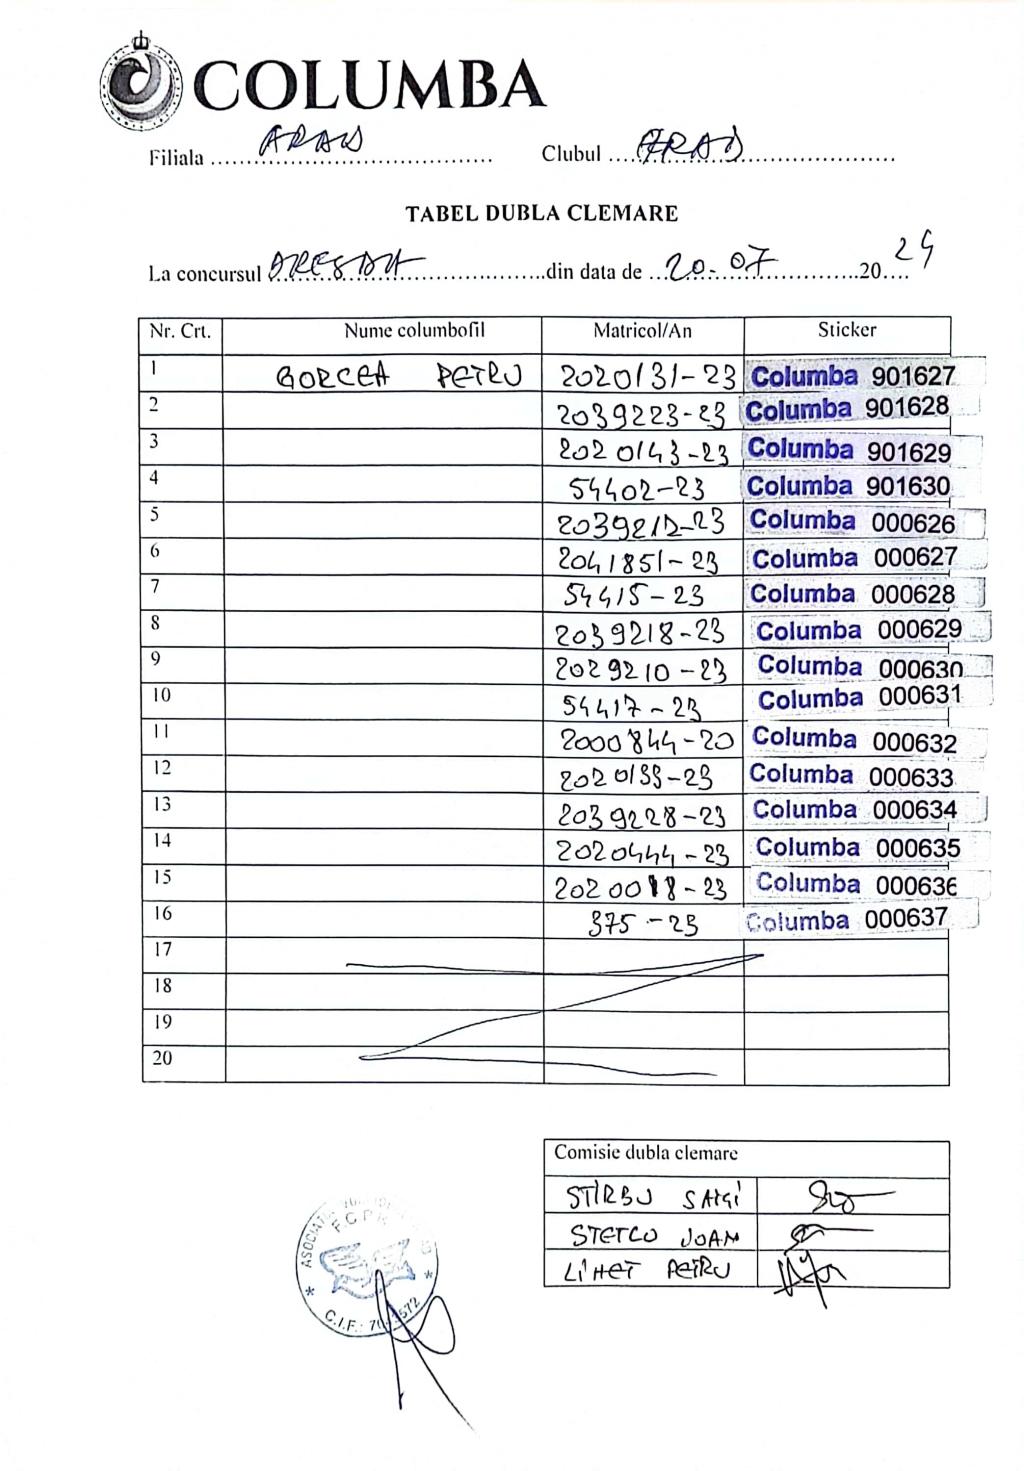 COLUMBA
Filiala ARAD Clubul ARAD
TABEL DUBLA CLEMARE
La concursul DRESDA din data de 20.07 2024
Nr. Crt. Nume columbofil Matricol/An Sticker
1 GORCEA PETRU 2020131-23 Columba 901627
2 2039223-23 Columba 901628
3 2020143-23 Columba 901629
4 54402-23 Columba 901630
5 2039212-23 Columba 000626
6 2041851-23 Columba 000627
7 54415-23 Columba 000628
8 2039218-23 Columba 000629
9 2029210-23 Columba 000630
10 54417-23 Columba 000631
11 2000844-20 Columba 000632
12 2020133-23 Columba 000633
13 2039228-23 Columba 000634
14 2020444-23 Columba 000635
15 2020018-23 Columba 000636
16 375-23 Columba 000637
17
18
19
20
Comisie dubla clemare
STIRBU
STETCO IOAN
LIHET PETRU
FCPR
C.I.F.: